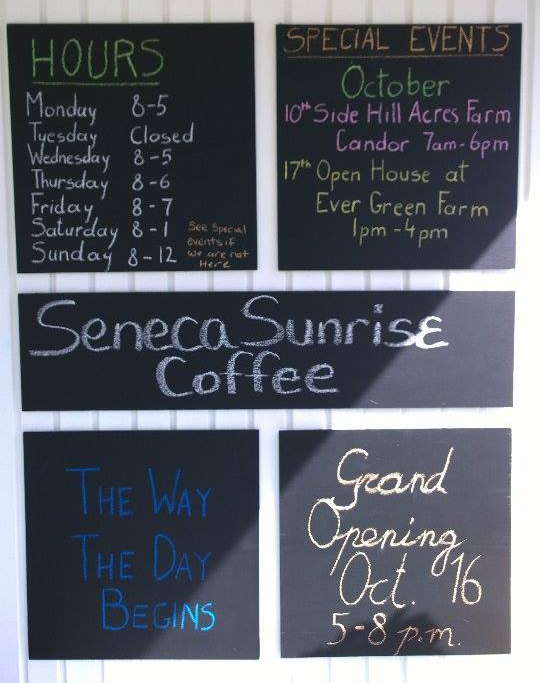 HOURS
Monday 8-5
Tuesday Closed
Wednesday 8-5
Thursday 8-6
Friday 8-7
Saturday 8-1
Sunday 8-12
See Special
events if
we are not
Here
SPECIAL EVENTS
October
10th Side Hill Acres Farm
Candor 7am-6pm
17th Open House at
Ever Green Farm
1pm-4pm
Seneca Sunrise
Coffee
THE WAY
THE DAY
BEGINS
Grand
Opening
Oct. 16
5-8 p.m.